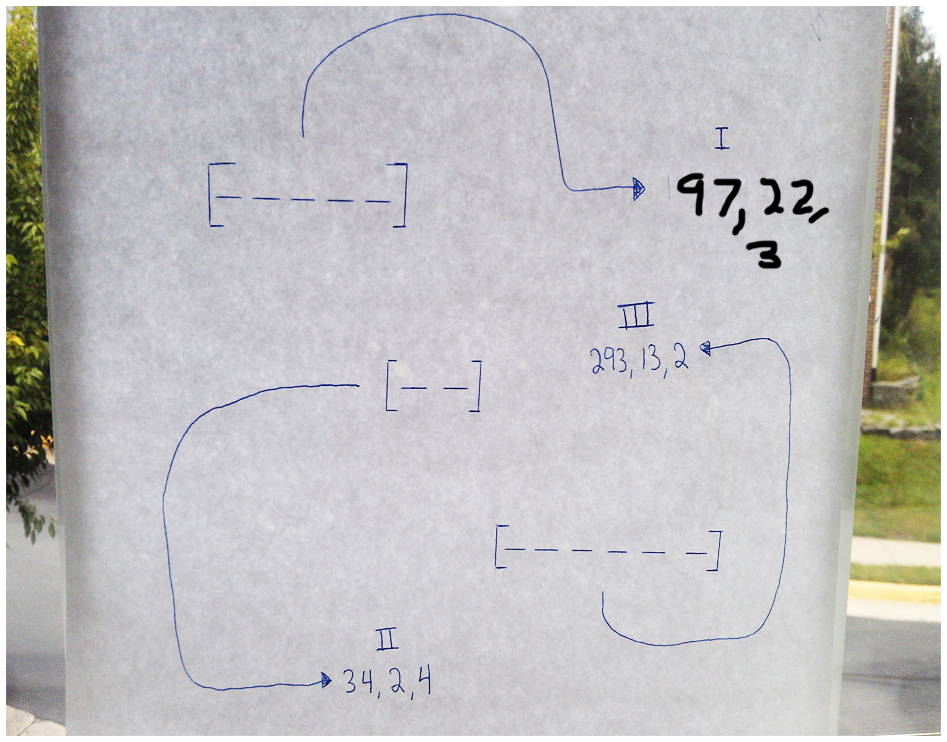 I
[_ _ _ _ _]
97, 22,
3
III
293, 13, 2
[_ _]
[_ _ _ _ _ _]
II
34, 2, 4